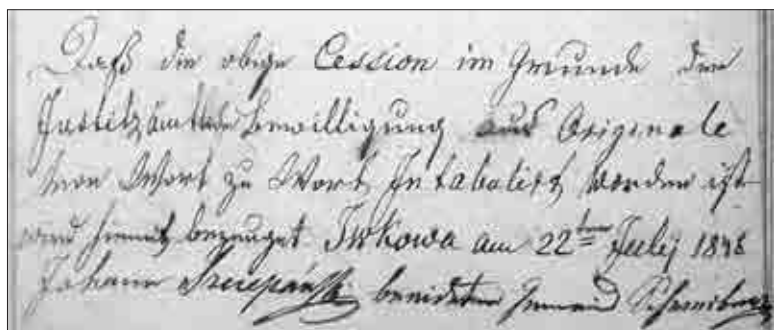 Daß die obige Cession im Grunde der
Justitzämtlichen Bewilligung aus Originale
von Wort zu Wort Intabulirt worden ist
wird hiemit bezeuget Iwkowa am 22ten Julij 1848
Johann beeideter Gemeind Schreiber